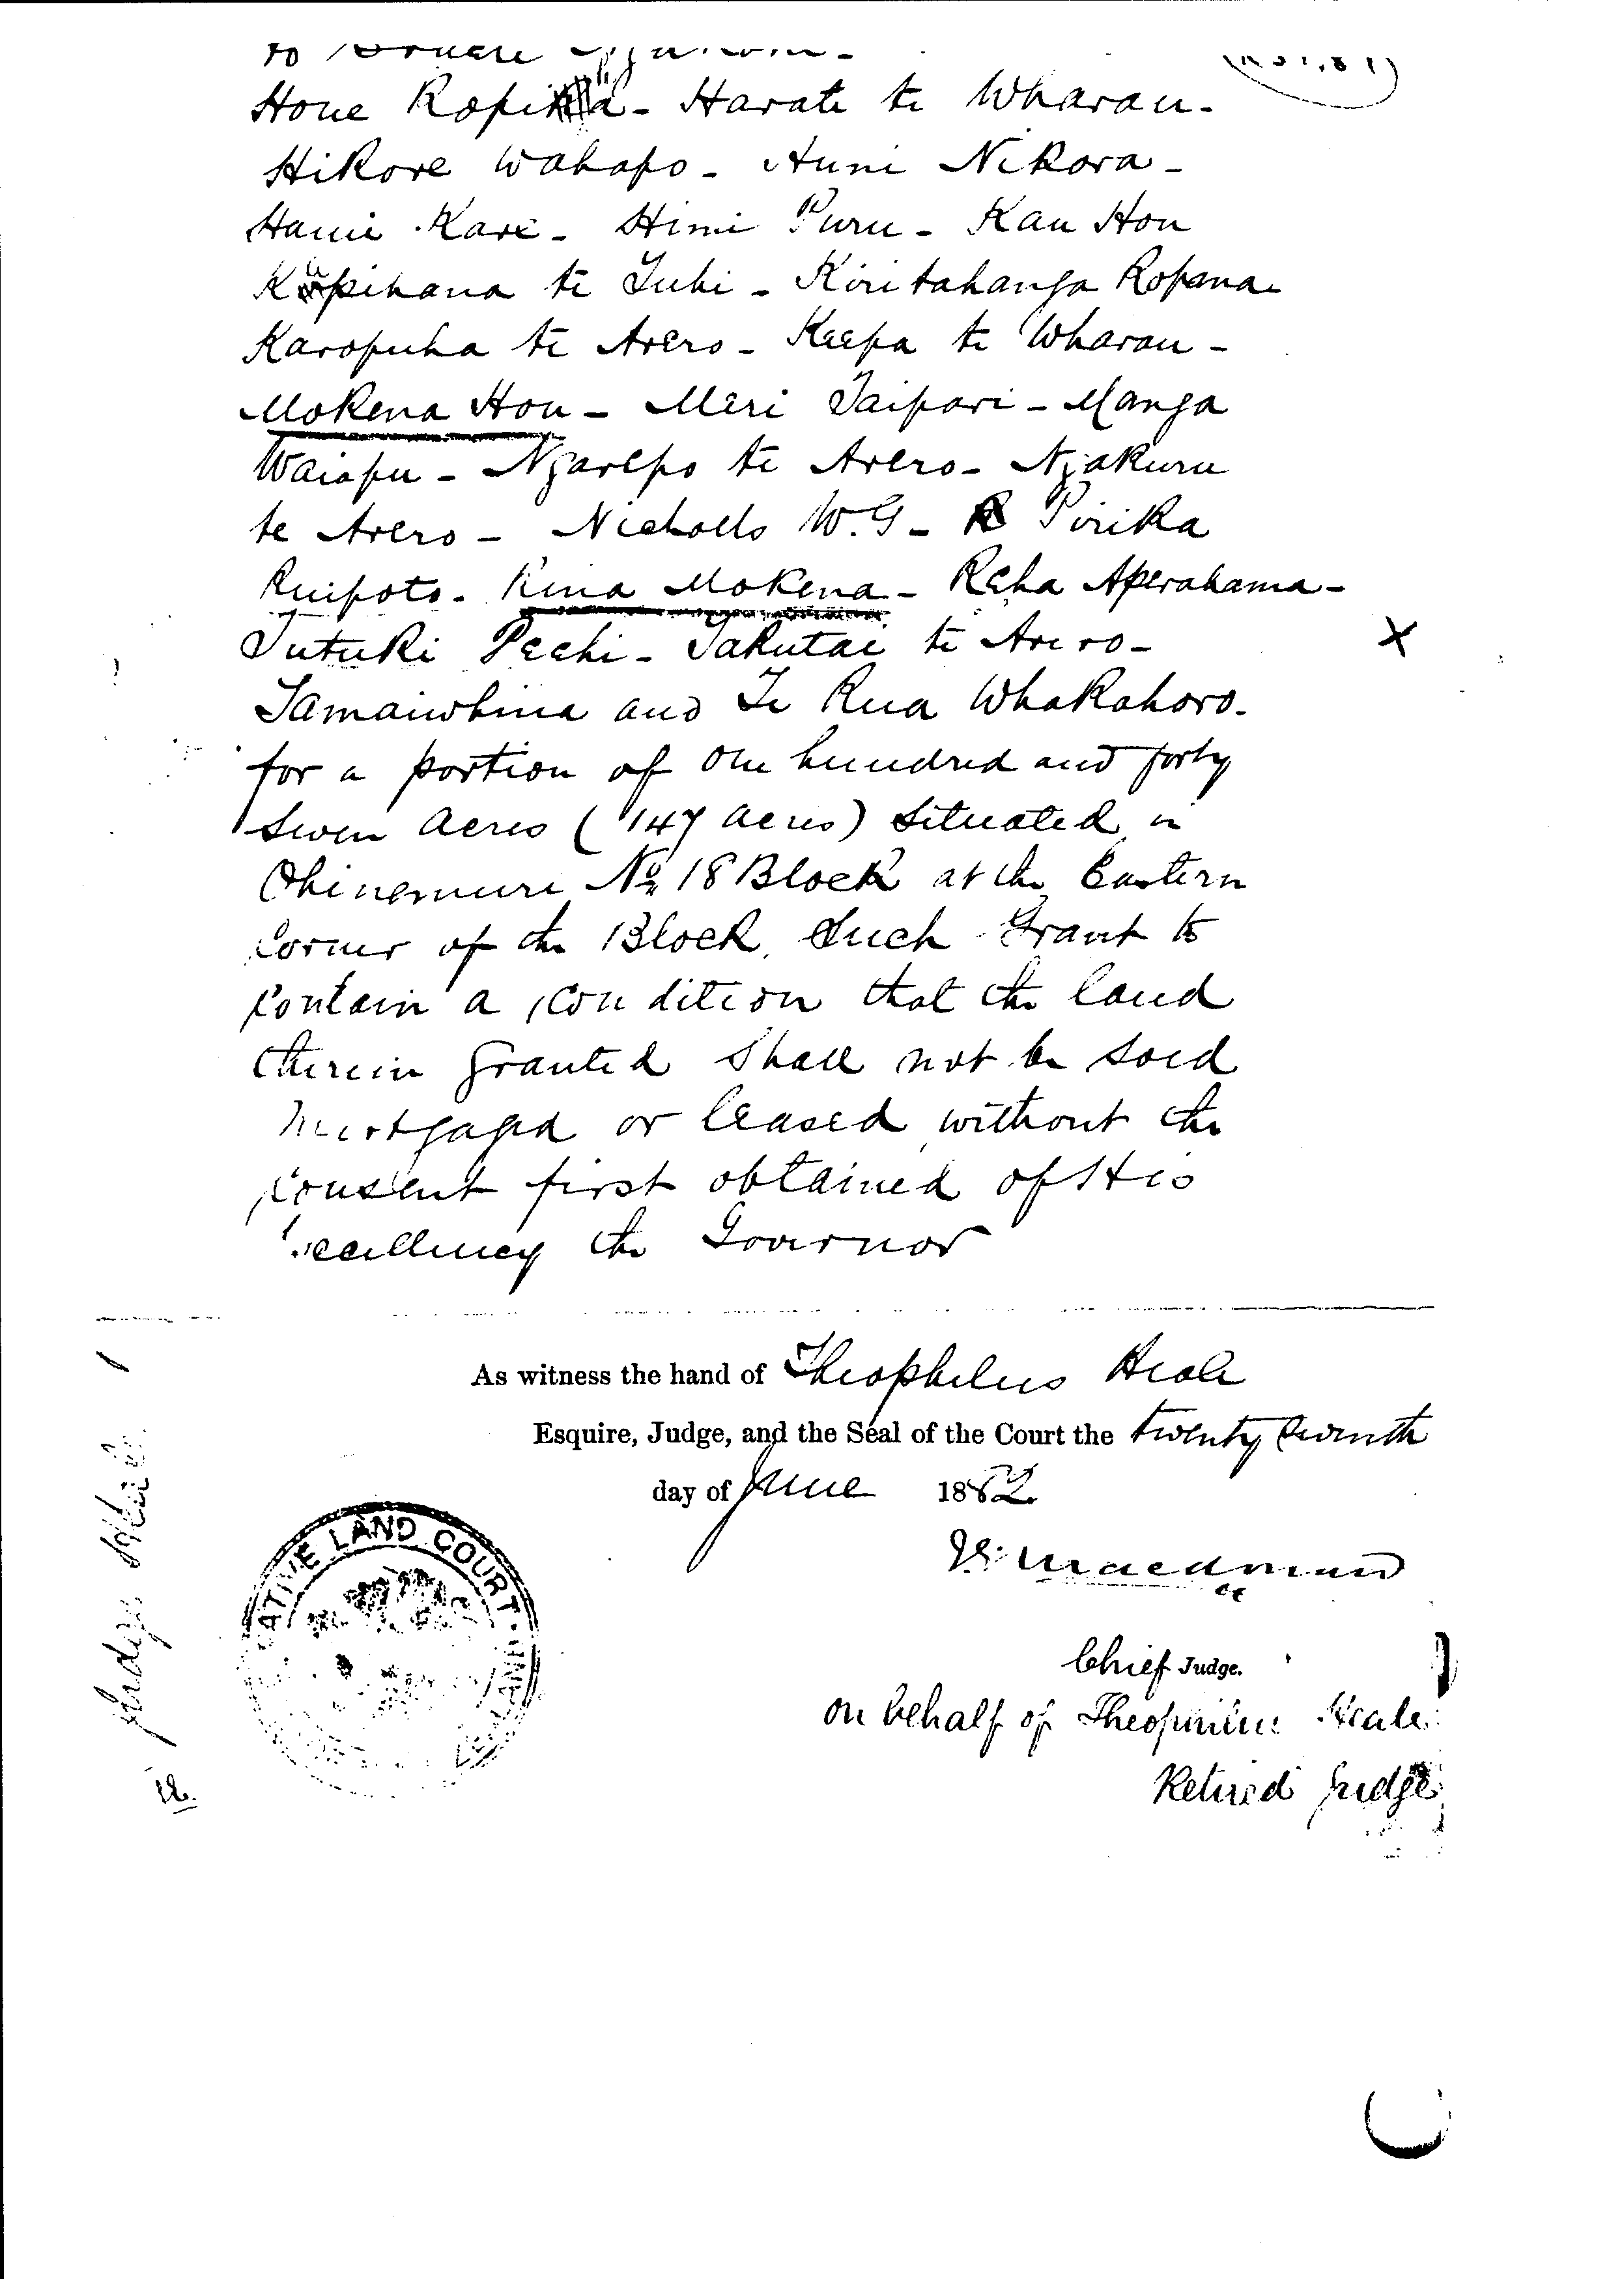 to
Hone Ropiha - Harate te Wharau -
Hikore Wahapo - Huni Nikora -
Hamie Kare - Himi Puru - Kau Hou
Kapihana te Tuhi - Kiritahanga Ropana -
Karopuha te Arero - Keepa te Wharau -
Mokena Hou - Meri Taipari - Manga
Waiapu - Ngarepo te Arero - Ngakuru
te Arero - Nicholls W.G - Pirika
Ruipoto - Rina Mokena - Reha Aperahama -
Tutuki Peehi - Takutai te Arero -
Tamaiwhina and Te Rua Whakahoro -
for a portion of one hundred and forty
seven acres (147 acres) situated in
Ohinemuri No 18 Block at the Eastern
corner of the Block. Such Grant to
contain a condition that the land
therein granted shall not be sold
mortgaged or leased without the
consent first obtained of His
Excellency the Governor
As witness the hand of Theophilus Heale
Esquire, Judge, and the Seal of the Court the twenty seventh
day of June 1882
NATIVE LAND COURT
Chief Judge.
on behalf of Theophilus Heale
Retired Judge
Judge Heale